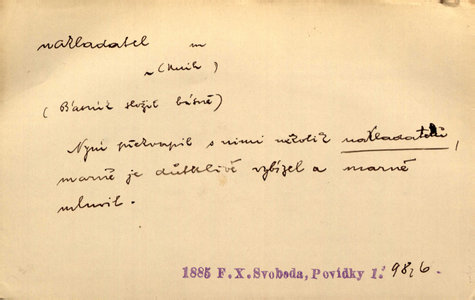 nakladatel m
~ (knih)
(Básník složil básně)
Nyní překvapil s nimi několik nakladatelů,
marně je důtklivě vybízel a marně
mluvil.
1885 F. X. Svoboda, Povídky 1. 98,6.